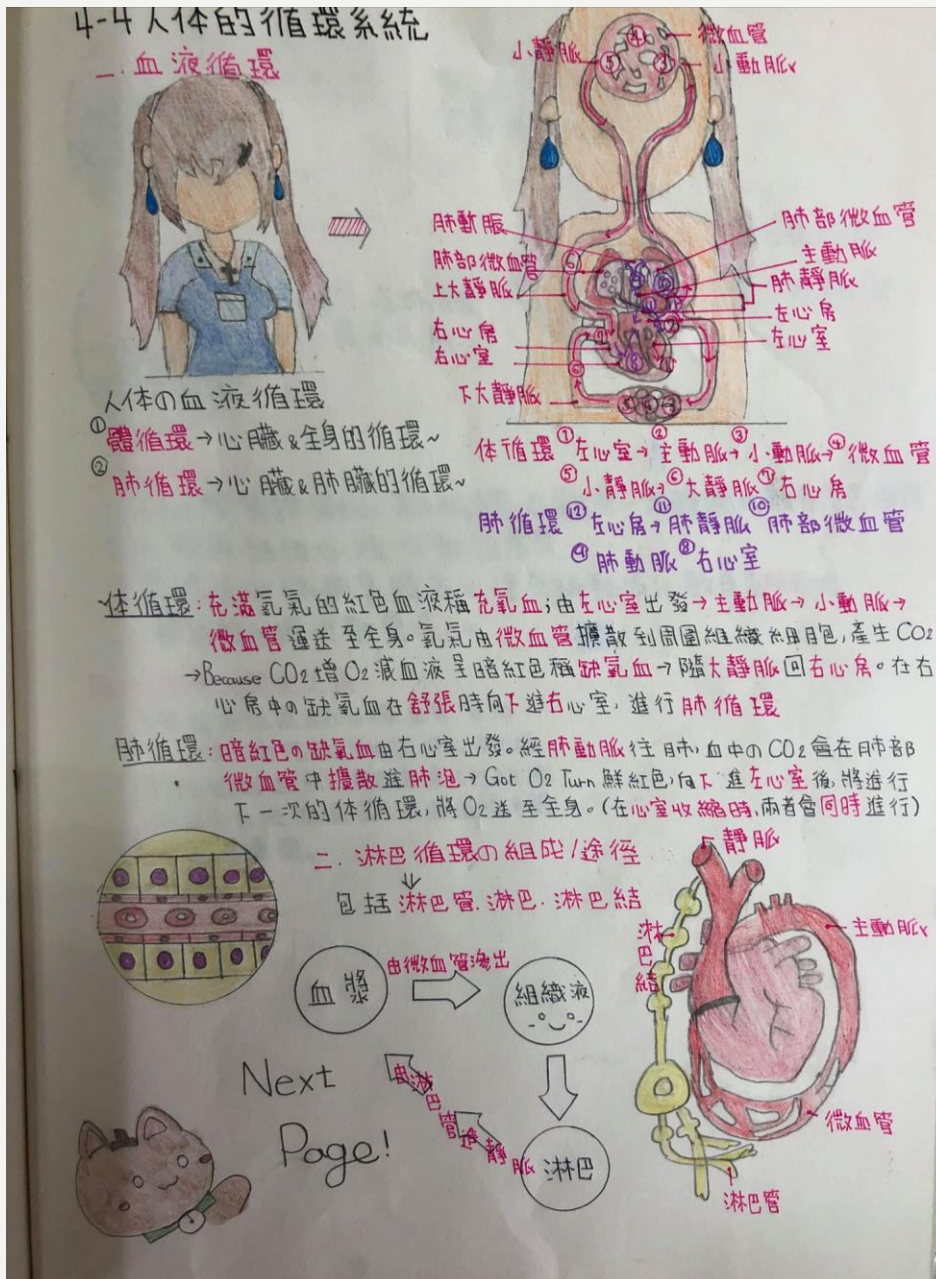 4-4 人体的循環系統
一. 血液循環
小靜脈
④
微血管
⑤
③
小動脈
肺動脈
肺部微血管
上大靜脈
右心房
右心室
下大靜脈
肺部微血管
主動脈
肺靜脈
左心房
左心室
人体の血液循環
①體循環→心臟&全身的循環~
②肺循環→心臟&肺臟的循環~
体循環 ①左心室→②主動脈→③小動脈→④微血管
⑤小靜脈→⑥大靜脈⑦右心房
肺循環 ⑫左心房→⑪肺靜脈⑩肺部微血管
⑨肺動脈⑧右心室
体循環:充滿氧氣的紅色血液稱充氧血;由左心室出發→主動脈→小動脈→
微血管運送至全身。氧氣由微血管擴散到周圍組織細胞,產生CO2
→Because CO2增O2減血液呈暗紅色稱缺氧血→隨大靜脈回右心房。在右
心房中の缺氧血在舒張時向下進右心室,進行肺循環
肺循環:暗紅色の缺氧血由右心室出發。經肺動脈往肺,血中のCO2會在肺部
微血管中擴散進肺泡→Got O2 Turn鮮紅色,向下進左心室後,將進行
下一次的体循環,將O2送至全身。(在心室收縮時,兩者會同時進行)
二. 淋巴循環の組成/途徑
↓
包括淋巴管.淋巴.淋巴結
血漿
由微血管滲出
組織液
淋巴
由淋巴管進靜脈
靜脈
主動脈
淋巴結
微血管
淋巴管
Next
Page!